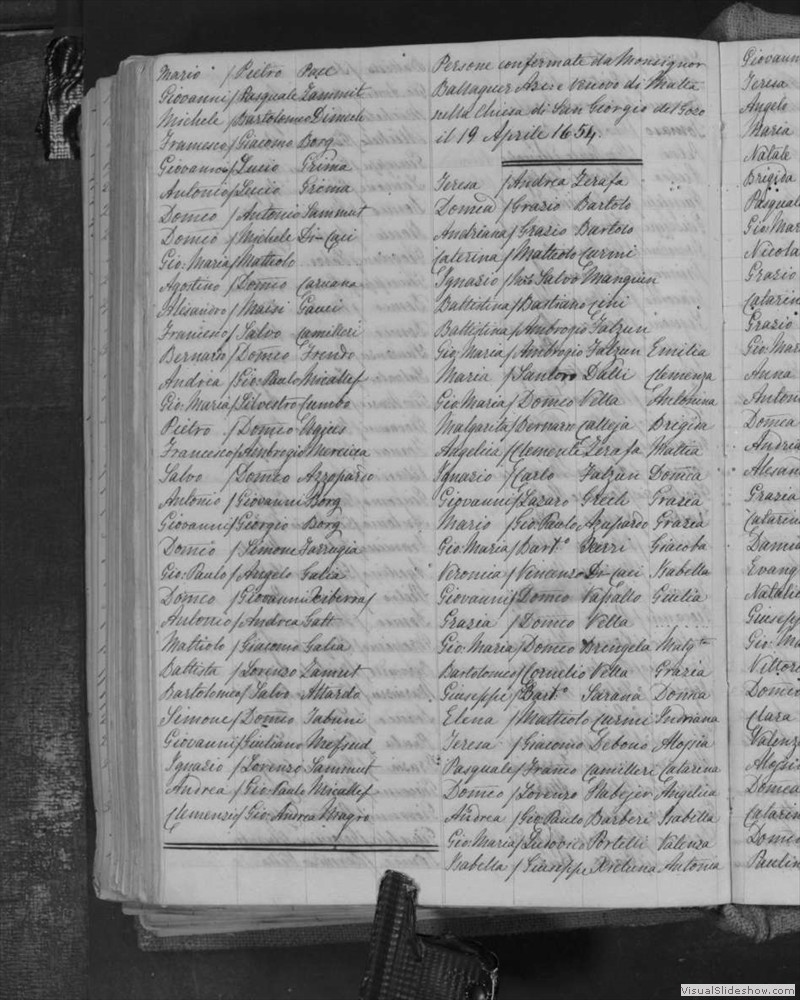 Mario / Pietro Pace
Giovanni / Pasquale Zammit
Michele / Bartolomeo Dimech
Francesco / Giacomo Borg
Giovanni / Lucio Grima
Antonio / Lucio Grima
Domco / Antonio Sammut
Domco / Michele Di-Caci
Gio: Maria / Mattiolo
Agostino / Domco Caruana
Alisandro / Maisi Gauci
Francesco / Salvo Camilleri
Bernardo / Domco Frendo
Andrea / Gio: Paulo Micallef
Gio: Maria / Silvestro Cumbo
Pietro / Domco Agius
Francesco / Ambrogio Mercieca
Salvo / Domco Azzopardo
Antonio / Giovanni Borg
Giovanni / Giorgio Borg
Domco / Simone Farrugia
Gio: Paulo / Angelo Galia
Domco / Giovanni Xiberras
Antonio / Andrea Gatt
Mattiolo / Giacomo Galia
Battista / Lorenzo Zamit
Bartolomeo / Salvo Attardo
Simone / Domco Tabuni
Giovanni / Giuliano Mefsud
Ignazio / Lorenzo Sammut
Andrea / Gio: Paulo Micallef
Clemensi / Gio: Andrea Magro
Persone confermate da Monsignor
Ballaguer Arciv. e Vescovo di Malta
nella Chiesa di San Georgio del Gozo
il 19 Aprile 1654.
Teresa / Andrea Zerafa
Domca / Grazio Bartolo
Andriana / Grazio Bartolo
Caterina / Matteolo Curmi
Ignazio / Salvo Mangiun
Battistina / Bastiano Cini
Battistina / Ambrogio Falzun
Gio: Maria / Ambrogio Falzun Emilia
Maria / Santoro Dalli Clemenza
Gio: Maria / Domco Vella Antonina
Malgarita / Bernardo Calleja Brigida
Angelica / Clemente Zerafa Mattia
Ignazio / Carlo Falzun Domca
Giovanni / Lazaro Grech Grazia
Mario / Gio: Paulo Azupardo Grazia
Gio: Maria / Bart.o Xerri Giacoba
Veronica / Vincenzo Di-Caci Isabella
Giovanni / Domco Vapallo Giulia
Grazia / Domco Vella
Gio: Maria / Domco Bringela Malg.ta
Bartolomeo / Cornelio Vella Grazia
Giuseppe / Bart.o Sarana Domca
Elena / Matteolo Curmi Indriana
Teresa / Giacomo Debono Aloisia
Pasquale / Franco Camilleri Catarina
Domco / Lorenzo Habejer Angelica
Andrea / Gio: Paulo Barberi Isabella
Gio: Maria / Ludovico Portelli Valenza
Isabella / Giuseppe Xriluna Antonia
Giovann
Teresa
Angelo
Maria
Natale
Brigida
Pasqual
Gio: Mar
Nicola
Grazio
Catarin
Grazio
Gio: Mar
Anna
Antoni
Domca
Andrea
Alesan
Grazia
Catarin
Damia
Evang
Natali
Giusepp
Gio: Ma
Vittor
Domco
Clara
Valenz
Aloisi
Domca
Catarin
Domco
Paulin
VisualSlideshow.com